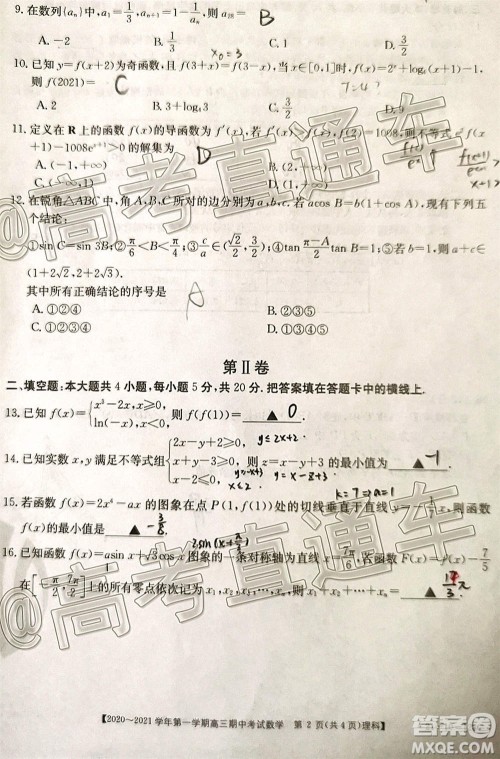 9. 在数列{aₙ}中，a₁=1/3，aₙ₊₁=1-1/aₙ，则a₂₀= B
A. -2 B. 1/3 C. 1 D. 3/2
x₀=3
10. 已知y=f(x+2)为奇函数，且f(3+x)=f(3-x)，当x∈[0,1]时，f(x)=2ˣ+log₃(x+1)-1，
则f(2021)= C T=4?
A. 2 B. 3+log₃2 C. D. 3/2
11. 定义在R上的函数f(x)的导函数为f′(x)，若f(x)
f(x+1)-1008eˣ⁺¹>0的解集为 D
A. (-1,+∞)
C. (-∞,1) D. (1,+∞) x+1>
12. 在锐角△ABC中，角A,B,C所对的边分别为a,b,c，若acos B=b(1+cos A)，现有下列五
个结论：
①sin C=sin 3B；②π/6<B<π/4；③c/a∈(√2/2,3/2)；④tan (π-A)/2 tan B=1；⑤若 则a+c∈
(1+2√2,2+2√3).
其中所有正确结论的序号是 A
A. ①②④ B. ②③⑤
C. ①③④ D. ①②④⑤
第Ⅱ卷
二、填空题：本大题共4小题，每小题5分，共20分.把答案填在答题卡中的横线上.
13. 已知f(x)={x³-2x,x≥0, ln(-x),x<0, 则f(f(1))= ▲ 0 .
14. 已知实数x,y满足不等式组{2x-y+2≥0, x+y-3≤0, 则z=x-y+3的最小值为 ▲ -1 .
15. 若函数f(x)=2x⁴-ax的图象在点P(1,f(1))处的切线垂直于直线y=-1/7x，则函数f(x)
的最小值为 ▲ -3/8 .
16. 已知函数f(x)=asin x+√3cos x图象的一条对称轴为直线x=7π/6，若函数F(x)=f(x)-7/5
在[-π/2,7π/2]上的所有零点依次记为x₁,x₂,x₃,…,xₙ，则x₁+x₂+x₃+…+xₙ= ▲
【2020～2021学年第一学期高三期中考试数学 第2页(共4页)理科】
高考直通车
高考直通车
作业帮
MACHHELP.COM